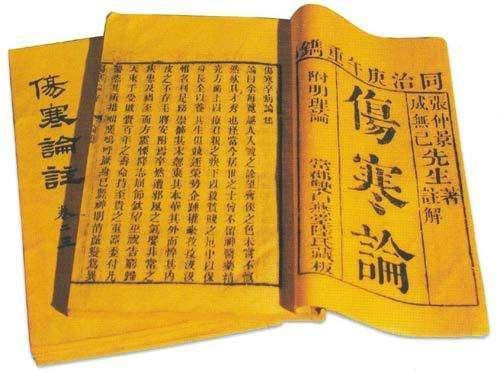 同治庚午重鐫
張仲景先生著
成無己先生註解
傷寒論
附明理論 常郡雙白燕堂陸氏藏板
傷寒卒病論集
論曰余每覽越人入虢之診望齊侯之色未嘗不慨
然歎其才秀也怪當今居世之士曾不留神醫藥精
究方術上以療君親之疾下以救貧賤之厄中以保
身長全以養其生但競逐榮勢企踵權豪孜孜汲汲
惟名利是務崇飾其末忽棄其本華其外而悴其內
皮之不存毛將安附焉卒然遭邪風之氣嬰非常之
疾患及禍至而方震慄降志屈節欽望巫祝告窮歸
天束手受敗賫百年之壽命持至貴之重器委付凡
醫恣其所措咄嗟嗚呼厥身已斃神明消滅變為異
傷寒論註 卷二三